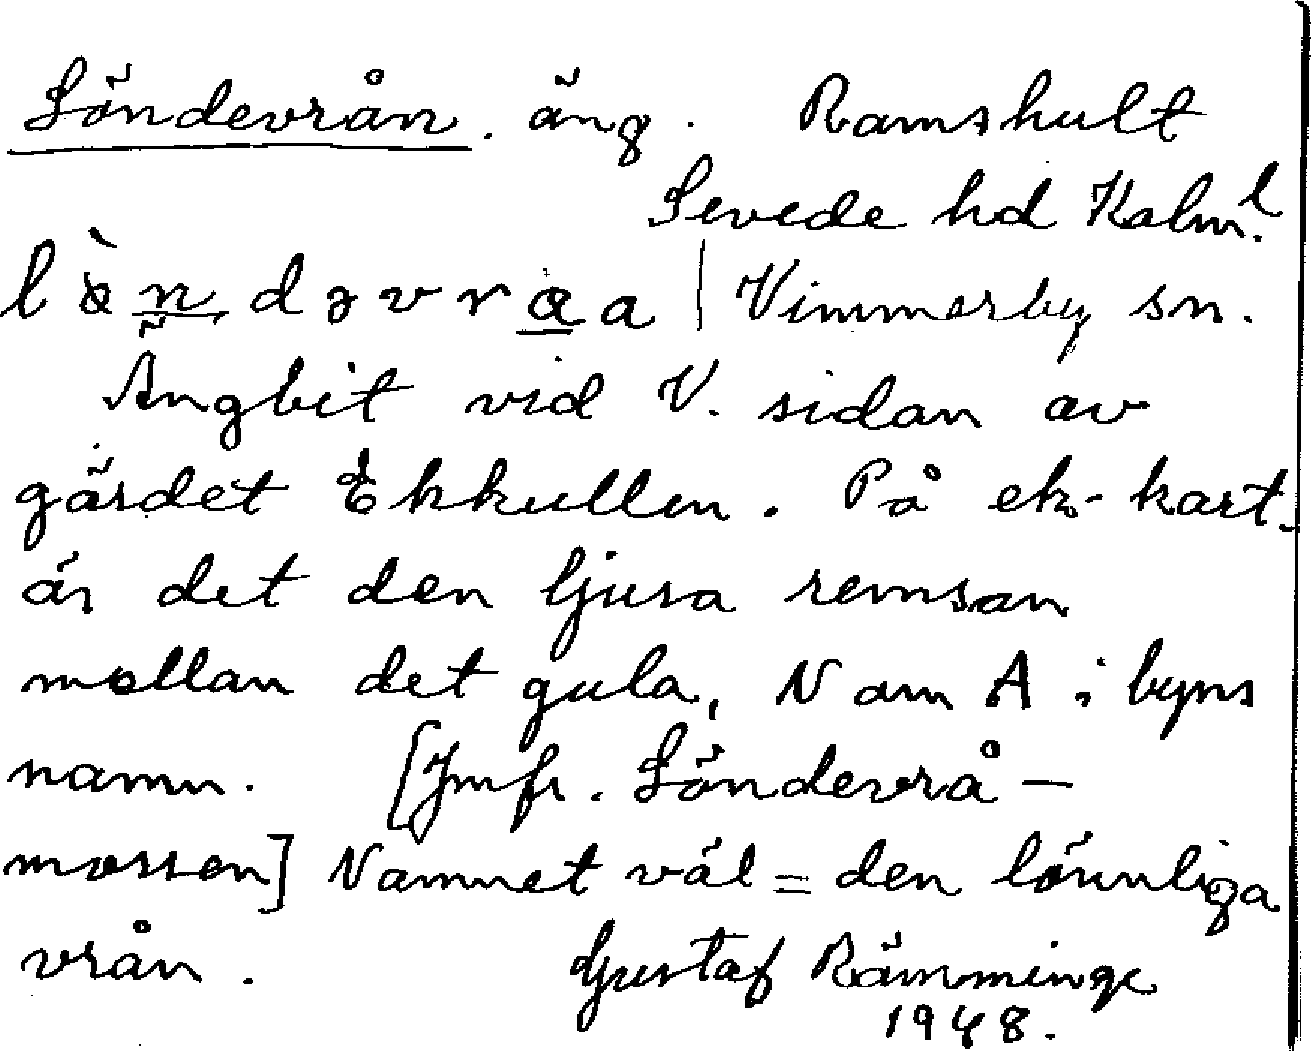 Löndevrån. äng. Ramshult
Sevede hd Kalm. l
l ö̀ n d ə v r a a | Vimmerby sn.
Ängbit vid V. sidan av
gärdet Ekkullen. På ek-kart.
är det den ljusa remsan
mellan det gula, N om A i byns
namn. [Jmfr. Löndevrå-
mossen] Namnet väl = den lönnliga
vrån. Gustaf Rämminge
1948.